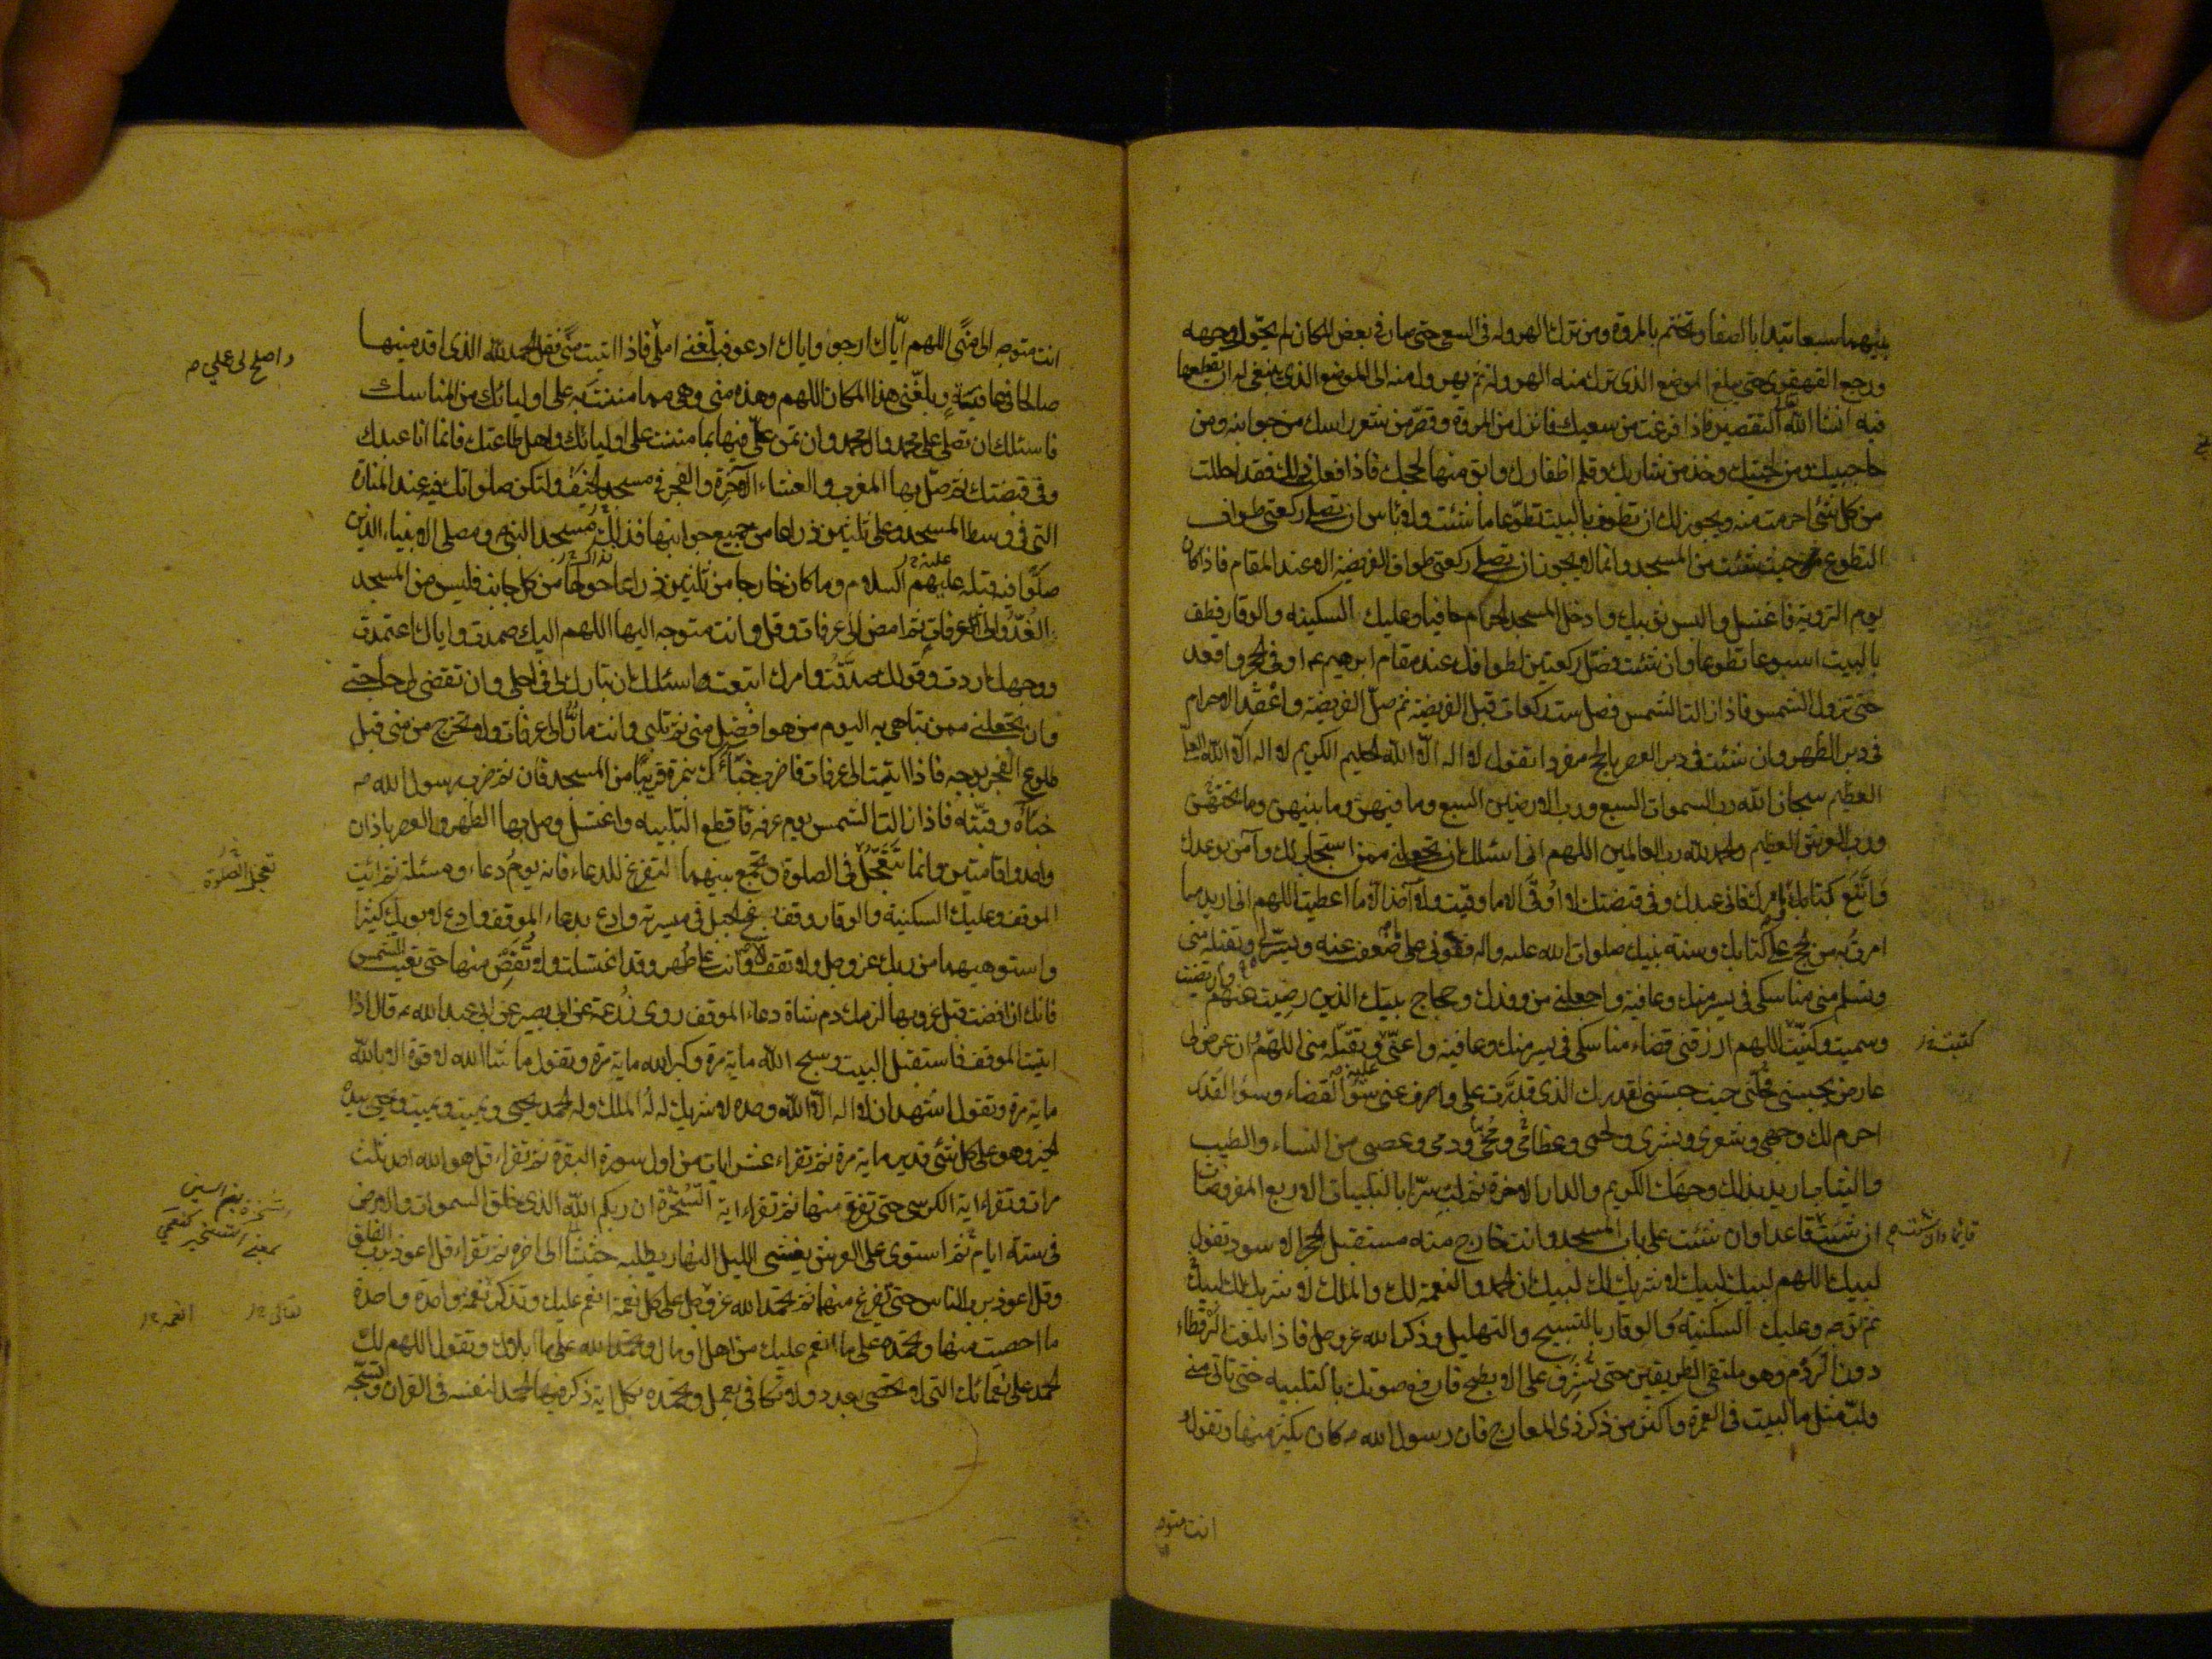 بينهما سبعا تبدا بالصفا وتختم بالمروة ومن ترك الهرولة فى السعى حتى صار فى بعض المكان لم يحوّل وجهه
ورجع القهقرى حتى يبلغ الموضع الذى ترك منه الهرولة ثم يهرول منه الى الموضع الذى ينبغى له ان يقطعها
فيه انشا الله التقصير فاذا فرغت من سعيك فانزل من المروة وقصّر من شعر راسك من جوانبه ومن
حاجبيك ومن لحيتك وخذ من شاربك وقلم اظفارك وابق منها لحجك فاذا فعلت ذلك فقد احللت
من كل شئ احرمت منه ويجوز لك ان تطوف بالبيت تطوّعا ما شئت ولا باس ان تصلى ركعتى طواف
التطوع من حيث شئت من المسجد وانما لا يجوز ان تصلى ركعتى طواف الفريضة الا عند المقام فاذا كان
يوم التروية فاغتسل والبس ثوبيك وادخل المسجد الحرام حافيا وعليك السكينه والوقار فطف
بالبيت اسبوعا تطوعا وان شئت فصّل ركعتين لطوافك عند مقام ابرهيم ع او فى الحجر واقعد
حتى تزول الشمس فاذا زالت الشمس فصل ست ركعات قبل الفريضة ثم صلّ الفريضة واعقد الاحرام
فى دبر الظهر وان شئت فى دبر العصر بالحج مفردا تقول لا اله الّا الله الحليم الكريم لا اله الّا الله العلى
العظيم سبحان الله رب السموات السبع ورب الارضين السبع وما فيهن وما بينهن وما تحتهن
ورب العرش العظيم والحمد لله رب العالمين اللهم انى اسئلك ان تجعلنى ممن استجاب لك وآمن بوعدك
واتّبع كتابك وامرك فانى عبدك وفى قبضتك لا اوقى الا ما وقيت ولا آخذ الا ما اعطيت اللهم انى اريد ما
امرت به من الحج على كتابك وسنة نبيك صلوات الله عليه واله فقونى على ما ضعفت عنه ويسّر لى وتقبله منى
وتسلم منى مناسكى فى يسر منك وعافية واجعلنى من وفدك وحجاج بيتك الذين رضيت عنهم وارتضيت
وسميت وكنيت اللهم ارزقنى قضاء مناسكى فى يسر منك وعافية واعنّى عليه وتقبّله منى اللهم وان عرض لى
عارض يحبسنى فحلنى حيث حبستنى لقدرك الذى قدّرت على واصرف عنى سوء القضاء وسوء القدر
احرم لك وجهى وشعرى وبشرى ولحمى وعظامى ومخى ودمى وعصبى من النساء والطيب
والثياب اريد بذلك وجهك الكريم والدار الاخرة ثم لب سرّا بالتلبيات الاربع المفروضات
ان شئت قاعدا وان شئت على باب المسجد وانت خارج منه مستقبل الحجر الاسود تقول
لبيك اللهم لبيك لبيك لا شريك لك لبيك ان الحمد والنعمة لك والملك لا شريك لك لبيك
ثم توجه وعليك السكينة والوقار بالتسبيح والتهليل وذكر الله عز وجل فاذا بلغت الرقطاء
دون الردم وهو ملتقى الطريقين حتى تشرف على الابطح فارفع صوتك بالتلبيه حتى تاتى منى
ولبّ مثل ما لبيت فى العمرة واكثر من ذكر ذى المعارج فان رسول الله ص كان يكثر منها وتقول و
انت متوجه
كتبت
انت متوجه الى منى اللهم ايّاك ارجو واياك ادعو فبلّغنى املى فاذا اتيت منى فقل الحمد لله الذى اقدمنيها
واصلح لى عملى ص
صالحا فى عافية وبلغنى هذا المكان اللهم وهذه منى وهى مما مننت به على اوليائك من المناسك
فاسئلك ان تصلى على محمد وال محمد وان تمن علىّ فيها بما مننت على اوليائك واهل طاعتك فانما انا عبدك
وفى قبضتك ثم صلّ بها المغرب والعشاء الآخرة والفجر فى مسجد الخيف ولتكن صلواتك فيه عند المنارة
التى فى وسط المسجد وعلى ثلثين ذراعا من جميع جوانبها فذلك مسجد النبى ومصلى الانبياء الذين
صلّوا فيه قبله عليهم السلام وما كان خارجا من ثلثين ذراعا حولها من كل جانب فليس من المسجد
الغدوّ الى العرفات ثم امض الى عرفات وقل وانت متوجه اليها اللهم اليك صمدت واياك اعتمدت
ووجهك اردت وقولك صدّقت وامرك اتبعت اسئلك ان تبارك لى فى اجلى وان تقضى لى حاجتى
وان تجعلنى ممن تباهى به اليوم من هو افضل منى ثم تلبى وانت مارّ الى عرفات ولا تخرج من منى قبل
طلوع الفجر بوجه فاذا اتيت الى عرفات فاضرب خباءك بنمرة قريبًا من المسجد فان ثم ضرب رسول الله ص
خباءه وقبّته فاذا زالت الشمس يوم عرفه فاقطع التلبيه واغتسل وصل بها الظهر والعصر باذان
واحد واقامتين وانما تتعجّل فى الصلوة وتجمع بينهما لتفرغ للدعاء فانه يوم دعاء ومسئلة ثم ائت
تعجل الصّلوة
الموقف وعليك السكينة والوقار وقف بسفح الجبل فى ميسرته وادع بدعاء الموقف وادع لابويك كثيرا
واستوهبهما من ربك عز وجل ولا تقف الا وانت على طهر وقد اغتسلت ولا تفض منها حتى تغيب الشمس
فانك ان افضت قبل غروبها لزمك دم شاة دعاء الموقف روى زرعة عن ابى بصير عن ابى عبد الله ع قال اذا
اتيت الموقف فاستقبل البيت وسبح الله ماية مرة وكبر الله ماية مرة وتقول ما شا الله لا قوة الا بالله
ماية مرة وتقول اشهد ان لا اله الّا الله وحده لا شريك له له الملك وله الحمد يحيى ويميت ويميت ويحيى بيده
الخير وهو على كل شئ قدير ماية مرة ثم تقراء عشر ايات من اول سورة البقرة ثم تقراء قل هو الله احد ثلث
مرات وتقراء اية الكرسى حتى تفرغ منها ثم تقراء اية السّخرة ان ربكم الله الذى خلق السموات والارض
فى ستة ايام ثم استوى على العرش يغشى الليل النهار يطلبه حثيثا الى اخره ثم تقراء قل اعوذ برب الفلق
وقل اعوذ برب الناس حتى تفرغ منهما ثم تحمد الله عز وجل على كل نعمة انعم عليك وتذكر نعمه واحدة واحدة
ما احصيت منها وتحمده على ما انعم عليك من اهل او مال وتحمد الله على ما ابلاك وتقول اللهم لك
الحمد على نعمائك التى لا تحصى بعدد ولا تكافى بعمل وتحمده بكل اية ذكر فيها الحمد لنفسه فى القران وتسبّحه